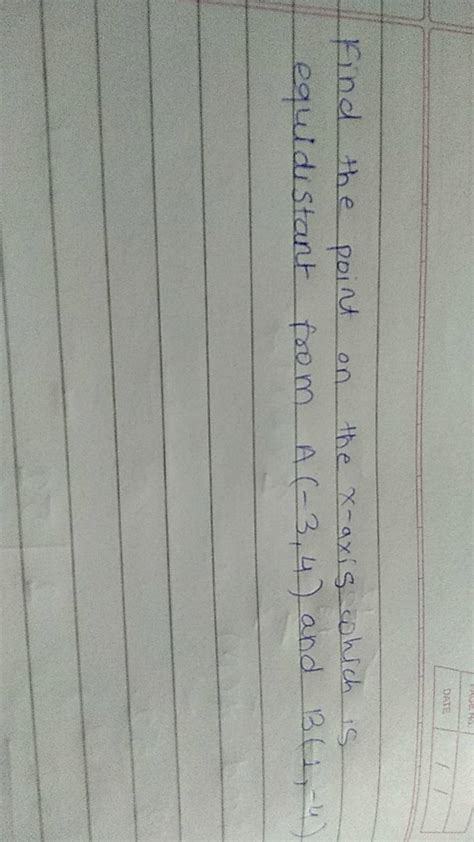 PAGE NO.
DATE / /
Find the point on the x-axis which is
equidistant from A(-3,4) and B(1,-4)